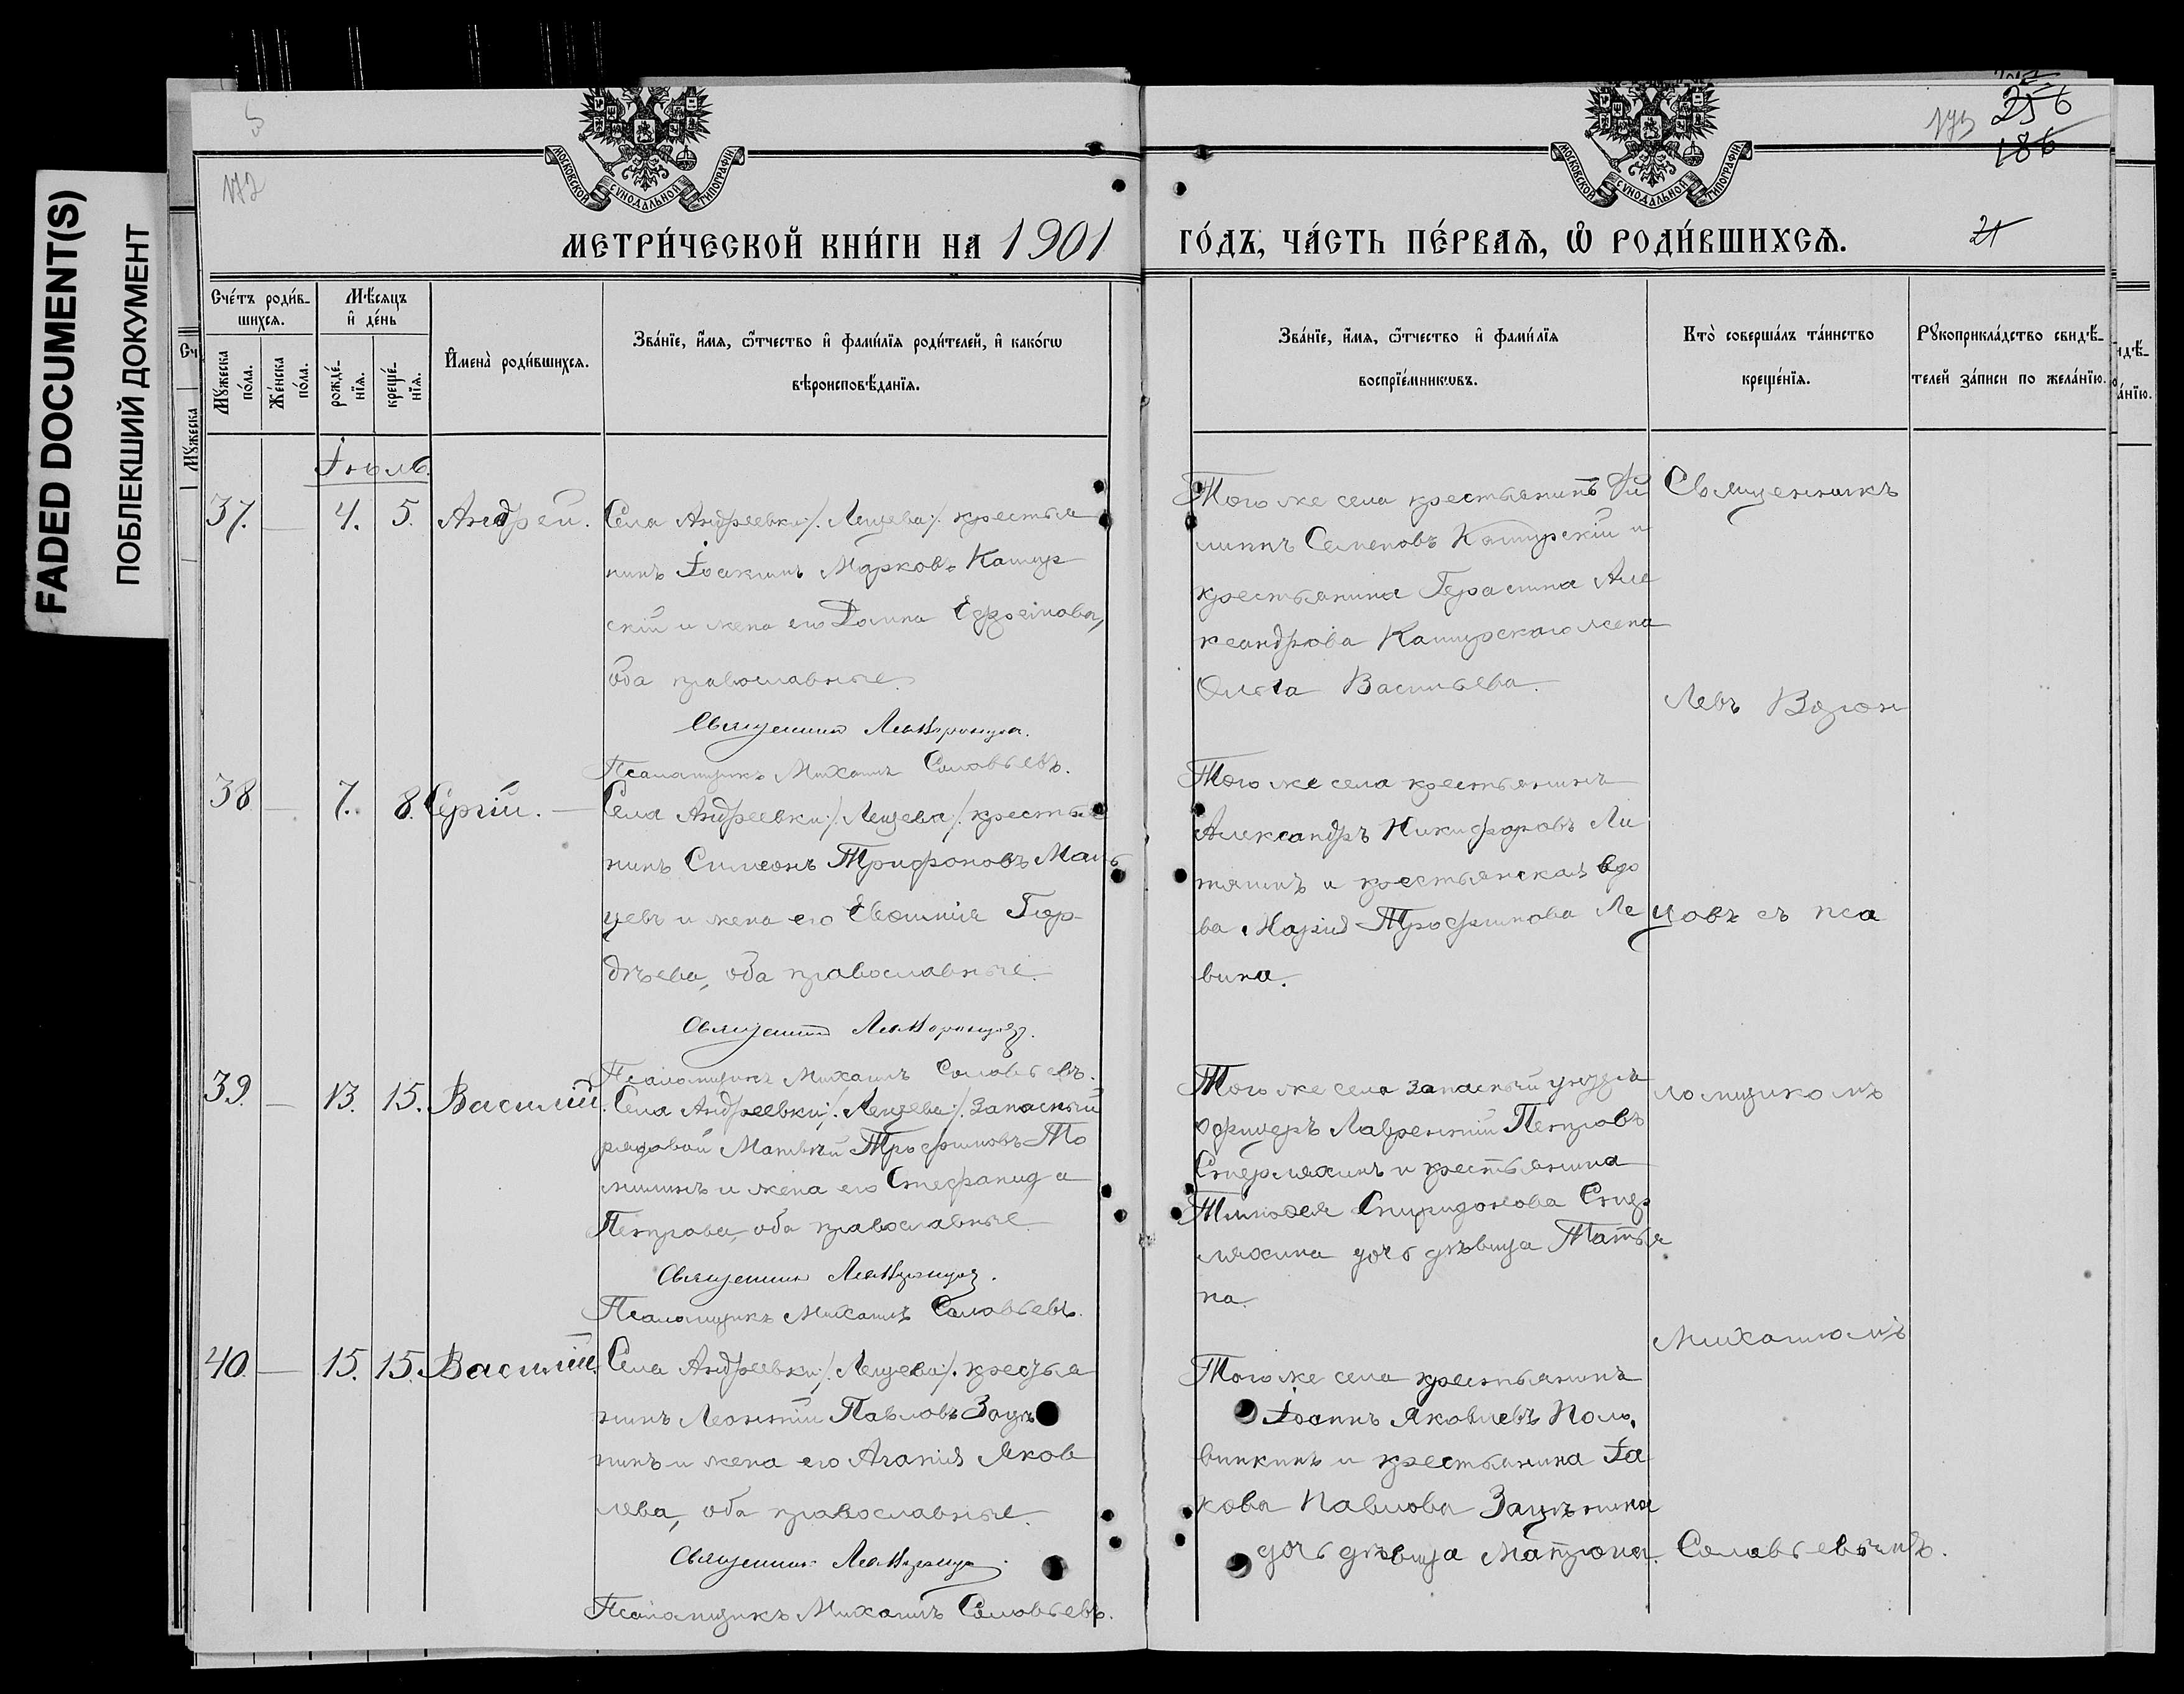 FADED DOCUMENT(S)
ПОБЛЕКШИЙ ДОКУМЕНТ
172
173
256
186
21
МОСКОВСКОЙ СѴНОДАЛЬНОЙ ТИПОГРАФІИ
МОСКОВСКОЙ СѴНОДАЛЬНОЙ ТИПОГРАФІИ
МЕТРИ́ЧЕСКОЙ КНИ́ГИ НА 1901
ГО́ДЪ, ЧА́СТЬ ПЕ́РВАЯ, Ѿ РОДИ́ВШИХСЯ.
Сче́тъ роди́в-
шихся.
Мѣсяцъ
и де́нь
Мꙋ́жеска по́ла.
Же́нска по́ла.
рожде́-нїя.
креще́-нїя.
И҆мена̀ роди́вшихся.
Зва́нїе, и҆́мя, ѻ҆́тчество и҆ фами́лїя роди́телей, и҆ како́гѡ
вѣроисповѣ́данїя.
Зва́нїе, и҆́мя, ѻ҆́тчество и҆ фами́лїя
воспрїе́мникѡвъ.
Кто̀ соверша́лъ та́инство
креще́нїя.
Рꙋкоприкла́дство свидѣ́-
телей за́писи по жела́нїю.
Іюль.
37. — 4. 5. Андрей. Села Андреевки /: Лещева :/ крестья
нинъ Іоакимъ Марковъ Кашир
скій и жена его Домна Ефремова,
оба православные.
Священникъ Левъ Воронцовъ.
Псаломщикъ Михаилъ Соловьевъ.
Того же села крестьянинъ Фи
липпъ Семеновъ Каширскій и
крестьянина Герасима Але
ксандрова Каширскаго жена
Ольга Васильева.
38 — 7. 8. Сергій. — Села Андреевки /: Лещева :/ крестья
нинъ Симеонъ Трифоновъ Маль
цевъ и жена его Евѳимія Гор
дѣева, оба православные.
Священникъ Левъ Воронцовъ.
Псаломщикъ Михаилъ Соловьевъ.
Того же села крестьянинъ
Александръ Никифоровъ Ли
тяпинъ и крестьянская вдо
ва Марія Трофимова Ле
вина.
39. — 13. 15. Василій. Села Андреевки /: Лещева :/ запасный
рядовой Матвѣй Трофимовъ То
милинъ и жена его Стефанида
Петрова, оба православные.
Священникъ Левъ Воронцовъ.
Псаломщикъ Михаилъ Соловьевъ.
Того же села запасный унтеръ
офицеръ Лаврентій Петровъ
Стерляхинъ и крестьянина
Тимоѳея Спиридонова Стер
ляхина дочь дѣвица Татья
на.
40. — 15. 15. Василій. Села Андреевки /: Лещева :/ крестья
нинъ Леонтій Павловъ Зацѣ
пинъ и жена его Агапія Яков
лева, оба православные.
Священникъ Левъ Воронцовъ.
Псаломщикъ Михаилъ Соловьевъ.
Того же села крестьянинъ
Іоаннъ Яковлевъ Поло
винкинъ и крестьянина Іа
кова Павлова Зацѣпина
дочь дѣвица Матрона.
Священникъ
Левъ Ворон
цовъ съ пса
ломщикомъ
Михаиломъ
Соловьевымъ.